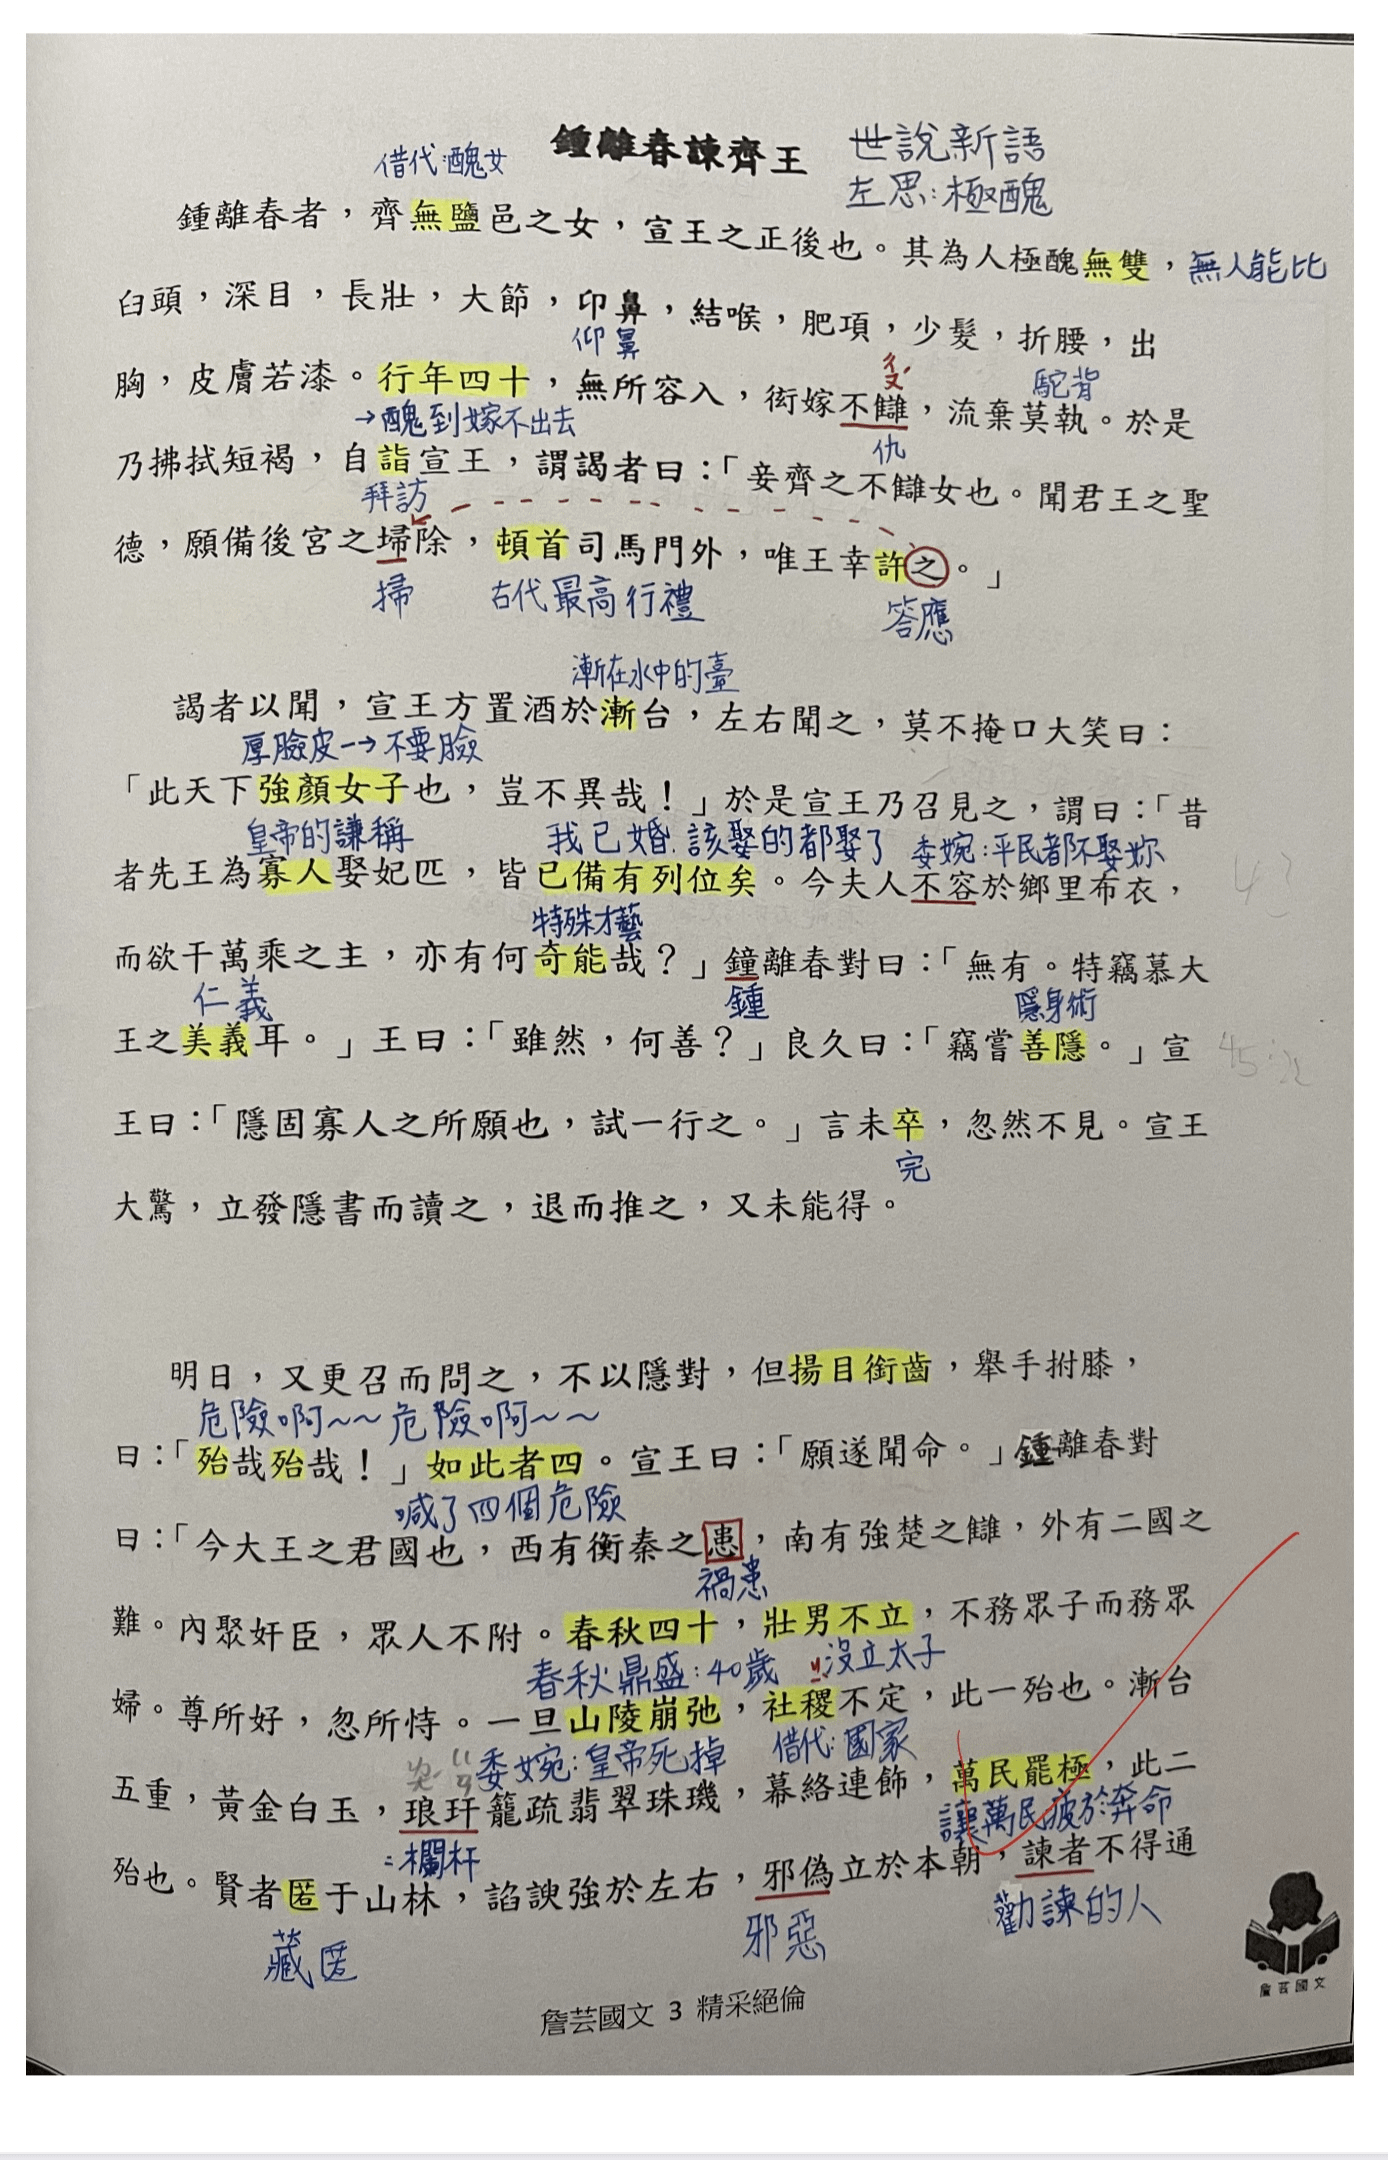 鍾離春諫齊王
世說新語
左思：極醜
借代：醜女
鍾離春者，齊無鹽邑之女，宣王之正後也。其為人極醜無雙，
無人能比
臼頭，深目，長壯，大節，卬鼻，結喉，肥項，少髮，折腰，出
仰鼻
駝背
胸，皮膚若漆。行年四十，無所容入，衒嫁不讎，流棄莫執。於是
→醜到嫁不出去
仇
乃拂拭短褐，自詣宣王，謂謁者曰：「妾齊之不讎女也。聞君王之聖
拜訪
德，願備後宮之埽除，頓首司馬門外，唯王幸許之。」
掃
古代最高行禮
答應
漸在水中的臺
謁者以聞，宣王方置酒於漸台，左右聞之，莫不掩口大笑曰：
厚臉皮→不要臉
「此天下強顏女子也，豈不異哉！」於是宣王乃召見之，謂曰：「昔
皇帝的謙稱
我已婚.該娶的都娶了
委婉：平民都不娶妳
者先王為寡人娶妃匹，皆已備有列位矣。今夫人不容於鄉里布衣，
特殊才藝
而欲干萬乘之主，亦有何奇能哉？」鐘離春對曰：「無有。特竊慕大
仁義
鍾
隱身術
王之美義耳。」王曰：「雖然，何善？」良久曰：「竊嘗善隱。」宣
王曰：「隱固寡人之所願也，試一行之。」言未卒，忽然不見。宣王
完
大驚，立發隱書而讀之，退而推之，又未能得。
明日，又更召而問之，不以隱對，但揚目銜齒，舉手拊膝，
危險啊~~危險啊~~
曰：「殆哉殆哉！」如此者四。宣王曰：「願遂聞命。」鍾離春對
喊了四個危險
曰：「今大王之君國也，西有衡秦之患，南有強楚之讎，外有二國之
禍患
難。內聚奸臣，眾人不附。春秋四十，壯男不立，不務眾子而務眾
春秋鼎盛：40歲
沒立太子
婦。尊所好，忽所恃。一旦山陵崩弛，社稷不定，此一殆也。漸台
委婉：皇帝死掉
借代：國家
五重，黃金白玉，琅玕籠疏翡翠珠璣，幕絡連飾，萬民罷極，此二
=欄杆
讓萬民疲於奔命
殆也。賢者匿于山林，諂諛強於左右，邪偽立於本朝，諫者不得通
藏匿
邪惡
勸諫的人
詹芸國文
詹芸國文 3 精采絕倫